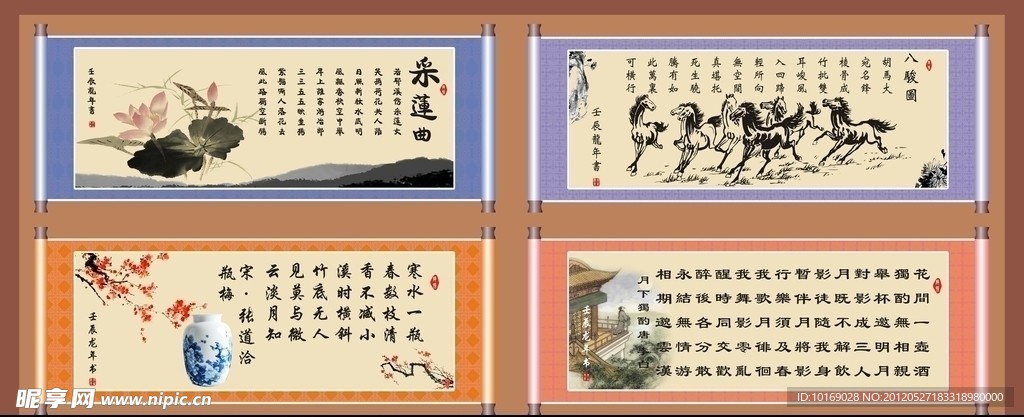 采蓮曲
若耶溪傍采蓮女
笑隔荷花共人語
日照新妝水底明
風飄香袂空中舉
岸上誰家游冶郎
三三五五映垂楊
紫騮嘶入落花去
壬辰龍年書
八駿圖
胡馬大
宛名鋒
棱骨成
竹批雙
耳峻風
入四蹄
輕所向
無空闊
真堪托
死生驍
騰有如
此萬裏
可橫行
壬辰龍年書
寒水一瓶
春数枝清
香不减小
溪时横斜
竹底无人
见莫与微
云淡月知
宋·张道洽
瓶梅
壬辰龙年书
花間一壺酒
獨酌無相親
舉杯邀明月
對影成三人
月既不解飲
影徒隨我身
暫伴月將影
行樂須及春
我歌月徘徊
我舞影零亂
醒時同交歡
醉後各分散
永結無情游
相期邀雲漢
月下獨酌唐李白
壬辰龙年书
昵享网 www.nipic.cn
ID:10169028 NO:20120527183318980000